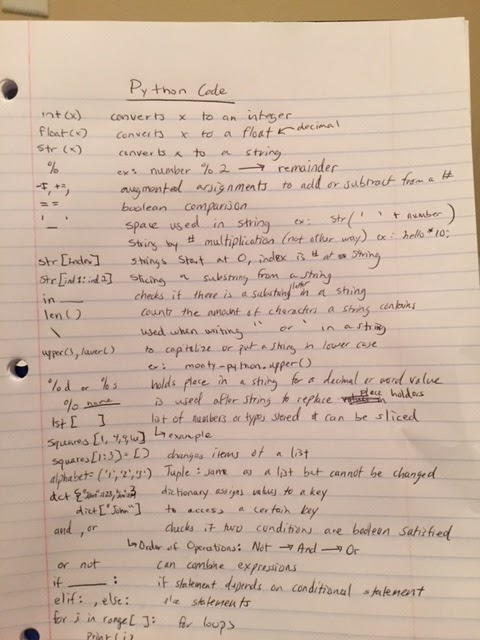 Python Code
int(x) converts x to an integer
float(x) converts x to a float ← decimal
str(x) converts x to a string
% ex: number % 2 → remainder
-=, +=, augmented assignments to add or subtract from a #
== boolean comparison
'_' space used in string ex: str(' ' + number)
string by # multiplication (not other way) ex: hello*10;
str[index] strings start at 0, index is # at string
str[ind1:ind2] slicing a substring from a string
in ___ checks if there is a substring in a string
len() counts the amount of characters a string contains
\ used when writing " or ' in a string
upper(), lower() to capitalize or put a string in lower case
ex: monty-python.upper()
%d or %s holds place in a string for a decimal or word value
% name is used after string to replace place holders
lst[ ] list of numbers or types stored & can be sliced
squares[1, 4, 9, 16] ↳ example
squares[1:3] = [] changes items of a list
alphabet = ('1', '2', '3') Tuple: same as a list but cannot be changed
dict dictionary assigns values to a key
dict["John"] to access a certain key
and, or checks if two conditions are boolean satisfied
↳ Order of Operations: Not → And → Or
or not can combine expressions
if ____ : if statement depends on conditional statement
elif: , else: else statements
for i in range[ ]: for loops
print(i)